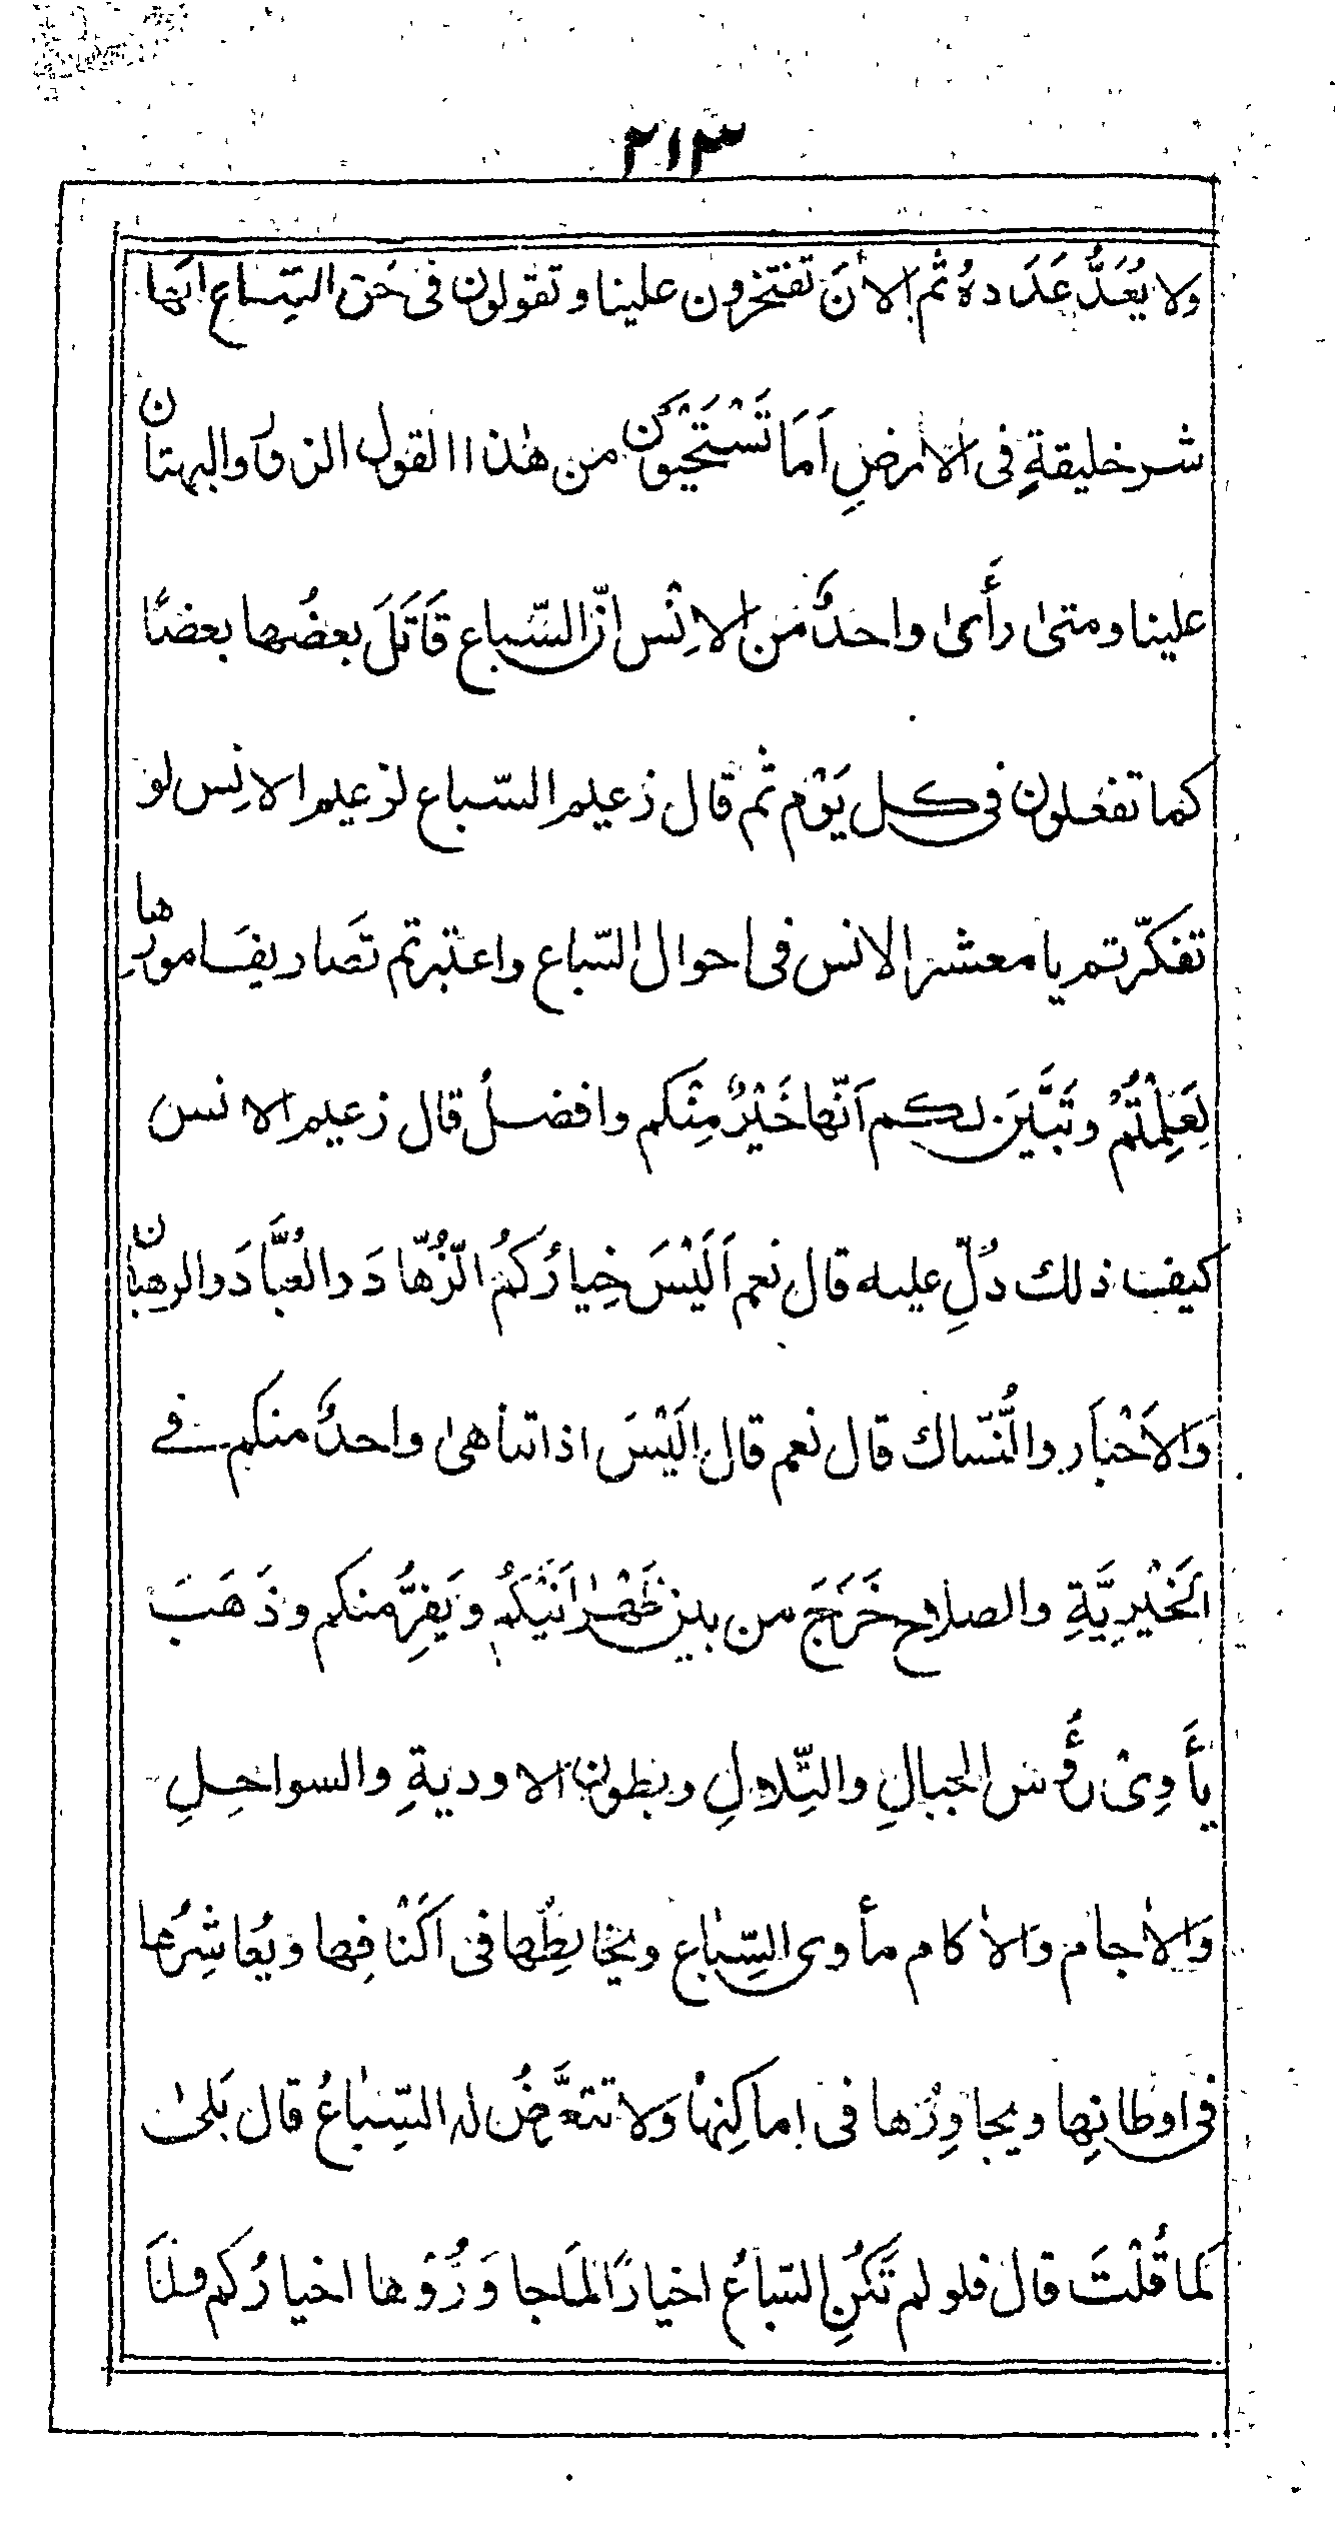 ٢١٣
ولا يُعَدُّ عَدَدهُ ثُم الاٰنَ تفتخرون علينا وتقولون فى حَق السِّباع انّها
شر خليقةٍ فى الارضِ اَمَا تَسْتَحْيُوْنَ من هٰذا القول الزور والبهتان
علينا ومتىٰ رأَىٰ واحدٌ من الانِْس انّ السّباع قَاتَلَ بعضُها بعضًا
كما تفعلون فى كل يَوْم ثم قال زعيم السّباع لزعيم الانِس لو
تفكّرتم يا معشر الانس فى احوال السّباع واعتبرتم تصَاريفَ امورِها
لَعَلِمْتُمْ وتَبَيَّنَ لكم اَنّها خَيْرٌ مِنْكم وافضلُ قال زعيم الانس
كيف ذلك دُلِّ عليه قال نعم اَلَيْسَ خِيارُكُم الزُّهّادَ والعُبَّادَ والرهبان
وَالاَحْبَار والنُّسّاك قال نعم قال اليْسَ اذا تناهىٰ واحدٌ منكم فے
الخَيْرِيَّةِ والصلاح خَرَجَ من بين ظَهْرٰانَيْكُم ويَفِرُّ منكم وذَهَبَ
يأَوِىْ رؤُس الجبالِ والتِّلالِ وبطون الاوديةِ والسواحِلِ
وَالاٰجام وَالاٰكام مأوى السِّباع ويخالِطُها فى اَكْنافِها ويُعاشِرُها
فى اوطانِها ويجاوِرُها فى اماكِنِها وَلا تتعَرَّضُ له السِّباعُ قال بَلىٰ
كَما قُلْتَ قال فلو لم تَكُنِ السّباعُ اخيارًا لمَا جاوَرُوْها اخيارُكم فلانَ